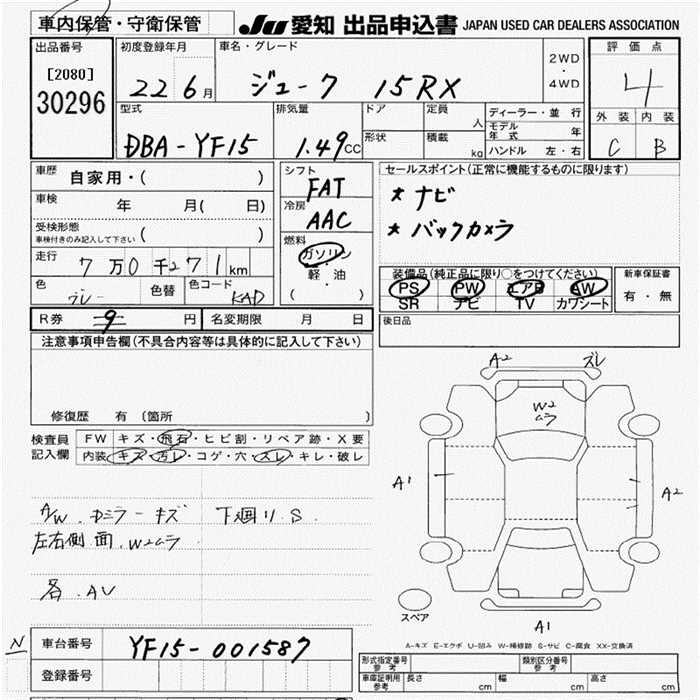 車内保管・守衛保管
JU 愛知 出品申込書 JAPAN USED CAR DEALERS ASSOCIATION
出品番号 初度登録年月 車名・グレード 2WD・4WD 評価点
[2080] 30296 22 6月 ジューク 15RX 4
型式 排気量 ドア 定員 人 ディーラー・並行 外装 内装
DBA-YF15 1.49cc 形状 積載 kg モデル年式 年 C B
ハンドル 左・右
車歴 自家用・( ) シフト FAT セールスポイント(正常に機能するものに限ります)
車検 年 月( 日) 冷房 AAC * ナビ
受検形態 ( ) * バックカメラ
車検付きのみ記入して下さい
燃料 ガソリン・軽油 ( )
走行 7万0千271km 装備品(純正品に限り○をつけてください) 新車保証書
色 グレー 色替 色コード KAD PS PW エアB AW 有・無
SR ナビ TV カワシート
R券 9 円 名変期限 月 日 後日品
注意事項申告欄(不具合内容等は具体的に記入して下さい)
修復歴 有 (箇所
検査員記入欄 FW キズ・飛石・ヒビ割・リペア跡・X要
内装 キズ・汚レ・コゲ・穴・スレ・キレ・破レ
A2 ズレ
W2ムラ
A1 A2
A/W.ドミラーキズ 下廻りS.
左右側面.W2ムラ
各.AU
スペア
A1
A-キズ E-エクボ U-凹み W-補修跡 S-サビ C-腐食 XX-交換済
N 車台番号 YF15-001587
登録番号
形式指定番号 参考 類別区分番号 参考
車庫証明用 参考 長さ cm 幅 cm 高さ cm